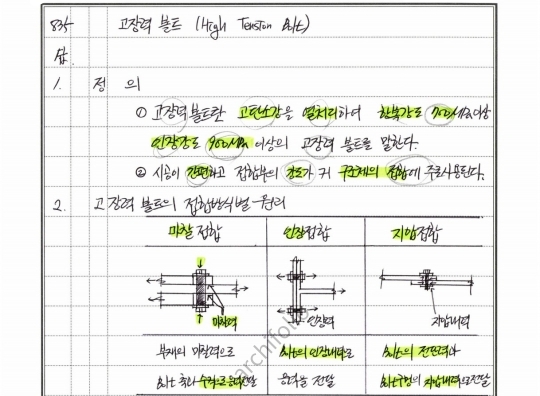 835 고장력 볼트 (High Tension Bolt)
답
1. 정 의
① 고장력볼트란 고탄소강을 열처리하여 항복강도 700MPa이상
인장강도 900MPa 이상의 고장력 볼트를 말한다.
② 시공이 간편하고 접합부의 강도가 커 구조체의 접합에 주로사용된다.
2. 고장력 볼트의 접합방식별 원리
마찰접합 인장접합 지압접합
마찰력 인장력 지압내력
부재의 마찰력으로 Bolt의 인장내력으로 Bolt의 전단력과
Bolt 축과 수직으로 응력전달 응력을 전달 Bolt구멍의 지압내력으로전달
archifol